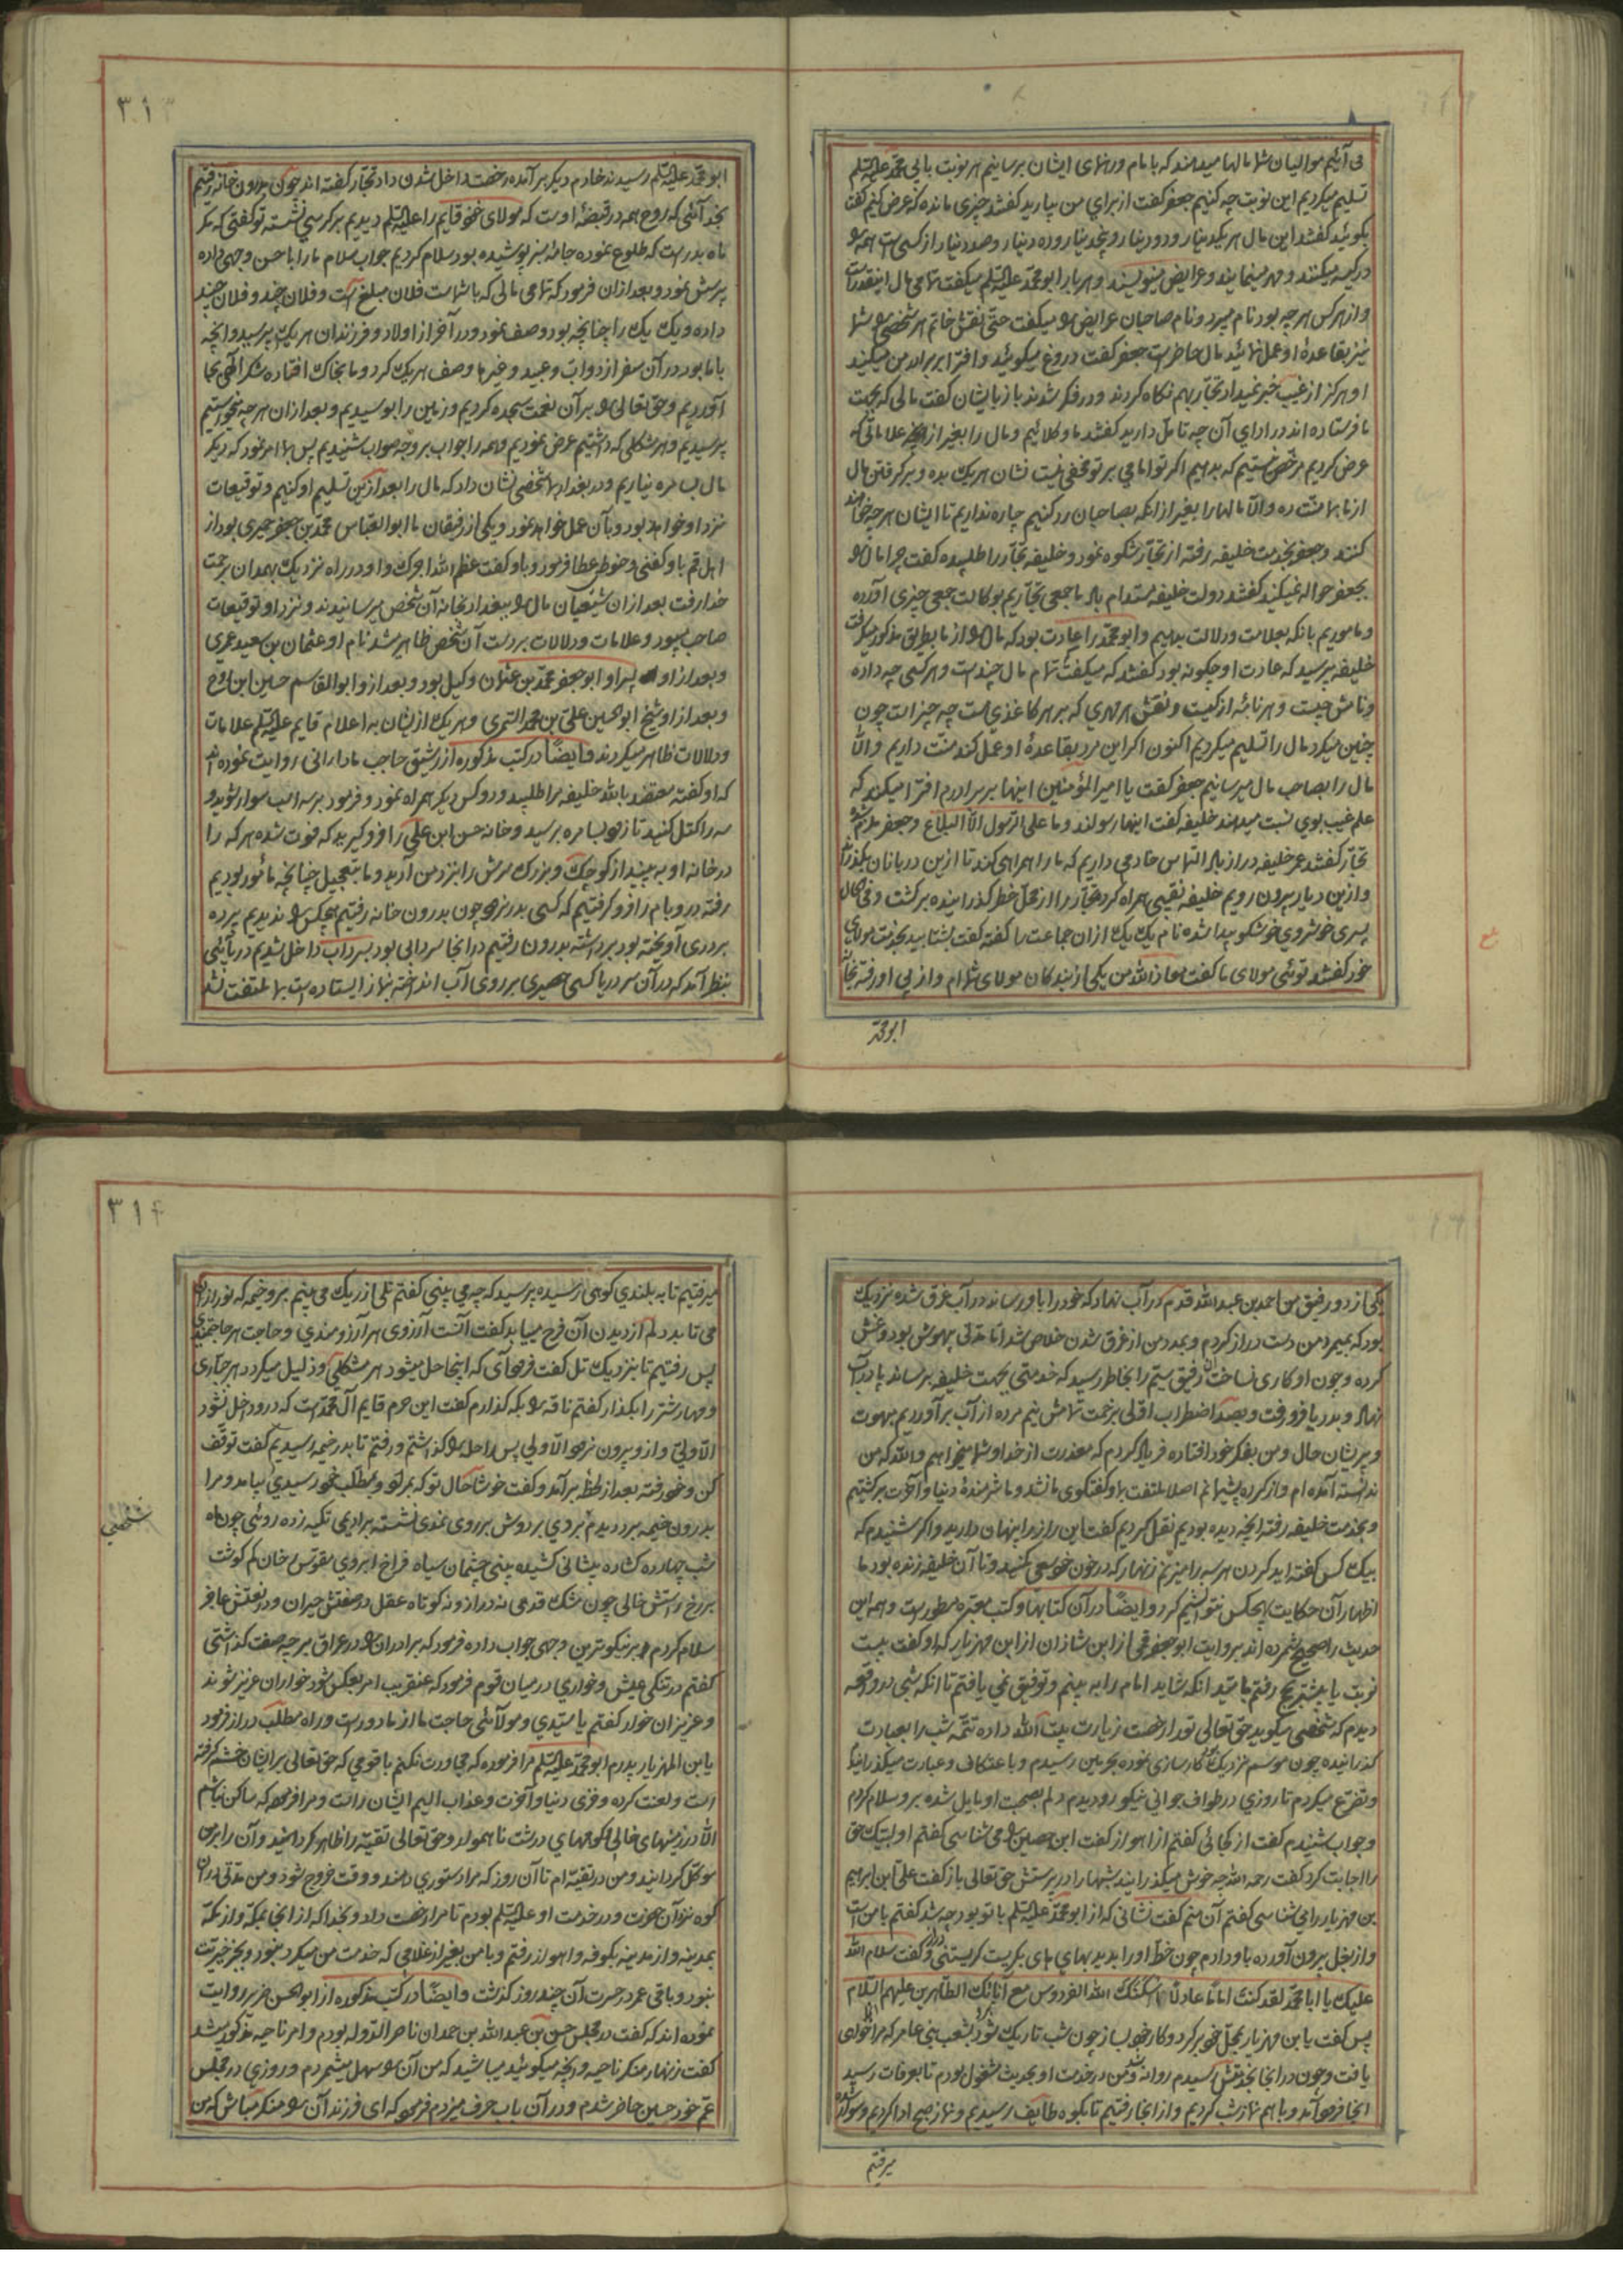 می آئیم موالیان شما مالها میدهند که بامام و رهنمای ایشان برسانیم هر نوبت بابی محمد علیه السلم
تسلیم میکردیم این نوبت چه کنیم جعفر گفت از برای من بیارید گفتند چیزی مانده که عرض کنیم گفت
بگوئید گفتند این مال هر یکدینار و دو دینار و پنجدینار و ده دینار و صد دینار از کسی است همه را
در کیسه میکنند و مهر مینمایند و عرایض مینویسند و هر بار ابو محمد علیه السلم میگفت تمامی مال اینقدر است
و از هر کس هر چه بود نام میبرد و نام صاحبان عرایض را میگفت حتی نقش خاتم هر شخصی را شما
نیز بقاعدهٔ او عمل نمائید مال حاضر است جعفر گفت دروغ میگوئید و افترا بر برادر من میکنید
او هرگز از غیب خبر نمیداد تجار بهم نگاه کردند و در فکر شدند باز بایشان گفت مالی که بجهت
ما فرستاده اند در ادای آن چه تامل دارید گفتند ما وکلائیم و مال را بغیر از آنچه علاماتی که
عرض کردیم مرخص نیستیم که بدهیم اگر تو امامی بر تو مخفی نیست نشان هر یک بده و بر گرفتن مال
از ما بما منت ده و الا مالها را بغیر از انکه بصاحبان رد کنیم چاره نداریم تا ایشان هر چه خواهند
کنند و جعفر بخدمت خلیفه رفته از تجار شکوه نمود و خلیفه تجار را طلبیده گفت چرا مال را
بجعفر حواله نمیکنید گفتند دولت خلیفه مستدام باد ما جمعی تجاریم بوکالت جمعی چیزی آورده
و ماموریم بانکه بعلامت و دلالت بدهیم و ابو محمد را عادت بود که مال را از ما بطریق مذکور میگرفت
خلیفه پرسید که عادت او چگونه بود گفتند که میگفت تمام مال چند است و هر کسی چه داده
و نامش چیست و هر نامه از کیست و نقش هر مهری که بر هر کاغذی است چه چیز است چون
چنین میکرد مال را تسلیم میکردیم اکنون اگر این مرد بقاعدهٔ او عمل کند منت داریم و الا
مال را بصاحب مال میرسانیم جعفر گفت یا امیر المؤمنین اینها بر برادرم افترا میکنند که
علم غیب بوی نسبت میدهند خلیفه گفت اینها رسولند و ما علی الرسول الا البلاغ و جعفر ملزم شد
تجار گفتند عمر خلیفه دراز باد التماس خادمی داریم که ما را همراهی کند تا ازین دربانان بگذریم
و ازین دیار بیرون رویم خلیفه نقیبی همراه کرد تجار را از محل خطر گذرانیده برگشت و فی الحال
پسری خوشروی خوشگو پیدا شده نام یک یک از ان جماعت را گفته گفت بشتابید بخدمت مولای
خود گفتند توئی مولای ما گفت معاذ الله من یکی از بندگان مولای شما ام و از پی او رفته بخانه
ابو محمد
٣١٣
ابو محمد علیه السلم رسیدند خادم دیگر بر آمده رخصت داخل شدن داد تجار گفته اند چون بدرون خانه رفتیم
بخدائی که روح همه در قبضهٔ اوست که مولای خود قایم را علیه السلم دیدیم بر کرسی نشسته تو گفتی که مگر
ماه بدر است که طلوع نموده جامهٔ سبز پوشیده بود سلام کردیم جواب سلام ما را باحسن وجهی داده
پرسش نمود و بعد از ان فرمود که تمامی مالی که با شماست فلان مبلغ است و فلان چند و فلان چند
داده و یک یک را چنانچه بود وصف نمود و در آخر از اولاد و فرزندان هر یک پرسید و انچه
با ما بود در آن سفر از دواب و عبید و غیرها وصف هر یک کرد و ما بخاک افتاده شکر الهی بجا
آوردیم و حق تعالی را بر آن نعمت سجده کردیم و زمین را بوسیدیم و بعد از ان هر چه میخواستیم
پرسیدیم و هر مشکلی که داشتیم عرض نمودیم و همه را جواب بر وجه صواب شنیدیم پس بما امر نمود که دیگر
مال بسامره نیاریم و در بغداد شخصی نشان داد که مال را بعد ازین تسلیم او کنیم و توقیعات
نزد او خواهد بود و بآن عمل خواهد نمود و یکی از رفیقان ما ابو العباس محمد بن جعفر حمیری بود از
اهل قم باو کفنی و حنوطی عطا فرمود و باو گفت عظم الله اجرک و او در راه نزدیک بهمدان برحمت
خدا رفت بعد از ان شیعیان مال را ببغداد بخانه آن شخص میرسانیدند و نزد او توقیعات
صاحب میبود و علامات و دلالات بر دست آن شخص ظاهر میشد نام او عثمان بن سعید عمری
و بعد از او پسر او ابو جعفر محمد بن عثمان وکیل بود و بعد از و ابو القاسم حسین ابن روح
و بعد از او شیخ ابو الحسین علی بن محمد السمری و هر یک از یشان به اعلام قایم علیه السلم علامات
و دلالات ظاهر میکردند و ایضا در کتب مذکوره از رشیق حاجب مادارانی روایت نموده اند
که او گفته معتضد بالله خلیفه مرا طلبید و دو کس دیگر همراه نمود و فرمود بر سه اسب سوار شوید و
سه را کتل کنید تا زود بسامره برسید و خانه حسن ابن علی را فرو گیرید که فوت شده هر که را
در خانه او به بینید از کوچک و بزرگ سرش را بنزد من آرید و ما بتعجیل چنانچه مامور بودیم
رفته در و بام را فرو گرفتیم که کسی بدر نرود چون بدرون خانه رفتیم هیچکس را ندیدیم پرده
بر دری آویخته بود برداشته بدرون رفتیم در انجا سردابی بود بسرداب داخل شدیم دریائی
بنظر آمد که در آن سر دریا کسی حصیری بر روی آب انداخته بنماز ایستاده است بما ملتفت نشد
یکی از دو رفیق من احمد بن عبد الله قدم در آب نهاد که خود را باو رساند در آب غرق شده نزدیک
بود که بمیرد من دست دراز کردم و بمدد من از غرق شدن خلاص شد اما مدتی بیهوش بود و غش
کرده و چون او کاری نساخت آن رفیق سیم را بخاطر رسید که خدمتی بجهت خلیفه برساند پا در آب
نهاد و بدریا فرو رفت و بصد اضطراب اولی بزحمت تمامش نیم مرده از آب بر آوردیم مبهوت
و پریشان حال و من بفکر خود افتاده فریاد کردم که معذرت از خدا و شما میخواهم و الله که من
ندانسته آمده ام و از کرده پشیمانم اصلا ملتفت بما و گفتگوی ما نشد و ما شرمندهٔ دنیا و آخرت برگشتیم
و بخدمت خلیفه رفته انچه دیده بودیم نقل کردیم گفت این راز را پنهان دارید و اگر شنیدم که
بیک کس گفته اید گردن هر سه را میزنم زنهار که در خون خود سعی مکنید و تا آن خلیفه زنده بود ما
اظهار آن حکایت بهیچکس نتوانستیم کرد و ایضا در آن کتابها و کتب معتبره مسطور است و همه این
حدیث را صحیح شمرده اند بروایت ابو جعفر قمی از ابن شازان از ابن مهزیار که او گفت بیست
نوبت یا بیشتر بحج رفتم بامید انکه شاید امام را به بینم و توفیق نمی یافتم تا انکه شبی در واقعه
دیدم که شخصی میگوید حق تعالی تو را رخصت زیارت بیت الله داده تتمه شب را بعبادت
گذرانیده چون موسم نزدیک شد کارسازی نموده بحرمین رسیدم و با عتکاف و عبادت میگذرانید
و تضرع میکردم تا روزی در طواف جوانی نیکو رو دیدم دلم بصحبت او مایل شده برو سلام کردم
و جواب شنیدم گفت از کجائی گفتم از اهواز گفت ابن حصین را می شناسی گفتم او لبیک حق
را اجابت کرد گفت رحمه الله چه خوش میگذرانید شبها را در پرستش حق تعالی باز گفت علی ابن ابراهیم
بن مهزیار را می شناسی گفتم آن منم گفت نشانی که از ابو محمد علیه السلم با تو بود چه شد گفتم با من است
و از بغل بیرون آورده باو دادم چون خط او را بدید بهای های بگریست گریستنی دراز و گفت سلام الله
علیک یا ابا محمد لقد کنت اماما عادلا اسکنک الله الفردوس مع آبائک الطاهرین علیهم السلام
پس گفت یا بن مهزیار بمحل خود برگرد و کار خود بساز چون شب تاریک شود بشعب بنی عامر که مرا خواهی
یافت و چون در انجا بخدمتش رسیدم روانه شد و من در خدمت او بحدیث مشغول بودم تا بعرفات رسید
انجا فرود آمد و با هم نماز شب کردیم و از انجا رفتیم تا بکوه طایف رسیدیم و نماز صبح ادا کردیم و سوار شده
میرفتیم
٣١۴
میرفتیم تا به بلندی کوهی رسیده پرسید که چه می بینی گفتم تلی از ریک می بینم برو خیمه که نور از ان
می تابد دلم از دیدن آن فرح مییابد گفت آنست آرزوی هر آرزومندی و حاجت هر حاجتمندی
پس رفتیم تا بنزدیک تل گفت فرود آی که اینجا حل میشود هر مشکلی و ذلیل میگردد هر جباری
و مهار شتر را بگذار گفتم ناقه را بکه گذارم گفت این حرم قایم آل محمد است که در و داخل نشود
الا ولی و از و بیرون نرود الا ولی پس راحله را گذاشتم و رفتم تا بدر خیمه رسیدیم گفت توقف
کن و خود رفته بعد از لحظهٔ بر آمد و گفت خوشا حال تو که بمراد و مطلب خود رسیدی بیامد و مرا
بدرون خیمه برد دیدم بردی بر دوش بر روی نمدی نشسته بر ادیمی تکیه زده روئی چون ماه
شب چهارده گشاده پیشانی کشیده بینی چشمان سیاه فراخ ابروی مقوس رخان کم گوشت
بر رخ راستش خالی چون مشک قدمی نه دراز و نه کوتاه عقل در صفتش حیران و در نعتش عاجز
سلام کردم بر نیکوترین وجهی جواب داده فرمود که برادران را در عراق بر چه صفت گذاشتی
گفتم در تنگی عیش و خواری در میان قوم فرمود که عنقریب امر بعکس شود خواران عزیز شوند
و عزیزان خوار گفتم یا سیدی و مولائی حاجت ما از ما دور است و راه مطلب دراز فرمود
یا بن المهزیار پدرم ابو محمد علیه السلم مرا فرموده که مجاورت نکنم با قومی که حق تعالی بر ایشان خشم گرفته
است و لعنت کرده و خزی دنیا و آخرت و عذاب الیم ایشان راست و مرا فرموده که ساکن نباشم
الا در زمینهای خالی و کوههای درشت ناهموار و حق تعالی تقیه را ظاهر گردانید و آن را بر من
موکل گردانید و من در تقیه ام تا آن روز که مرا دستوری دهند و وقت خروج شود و من مدتی در ان
کوه نزد آن حضرت و در خدمت او علیه السلم بودم تا مرا رخصت داد و بخدا که از انجا بمکه و از مکه
بمدینه و از مدینه بکوفه و اهواز رفتم و با من بغیر از غلامی که خدمت من میکرد نبود و بجز خیریت
نبود و باقی عمر در حسرت آن چند روز گذشت و ایضا در کتب مذکوره از ابو الحسن ضریر روایت
نموده اند که گفت در مجلس حسن بن عبد الله بن حمدان ناصر الدوله بودم و امر ناحیه مذکور شد
گفت زنهار منکر ناحیه و انچه میگوئید مباشید که من آن را سهل میشمردم و روزی در مجلس
عم خود حسین حاضر شدم و در آن باب حرف میزدم فرمود که ای فرزند آن را منکر مباش که من